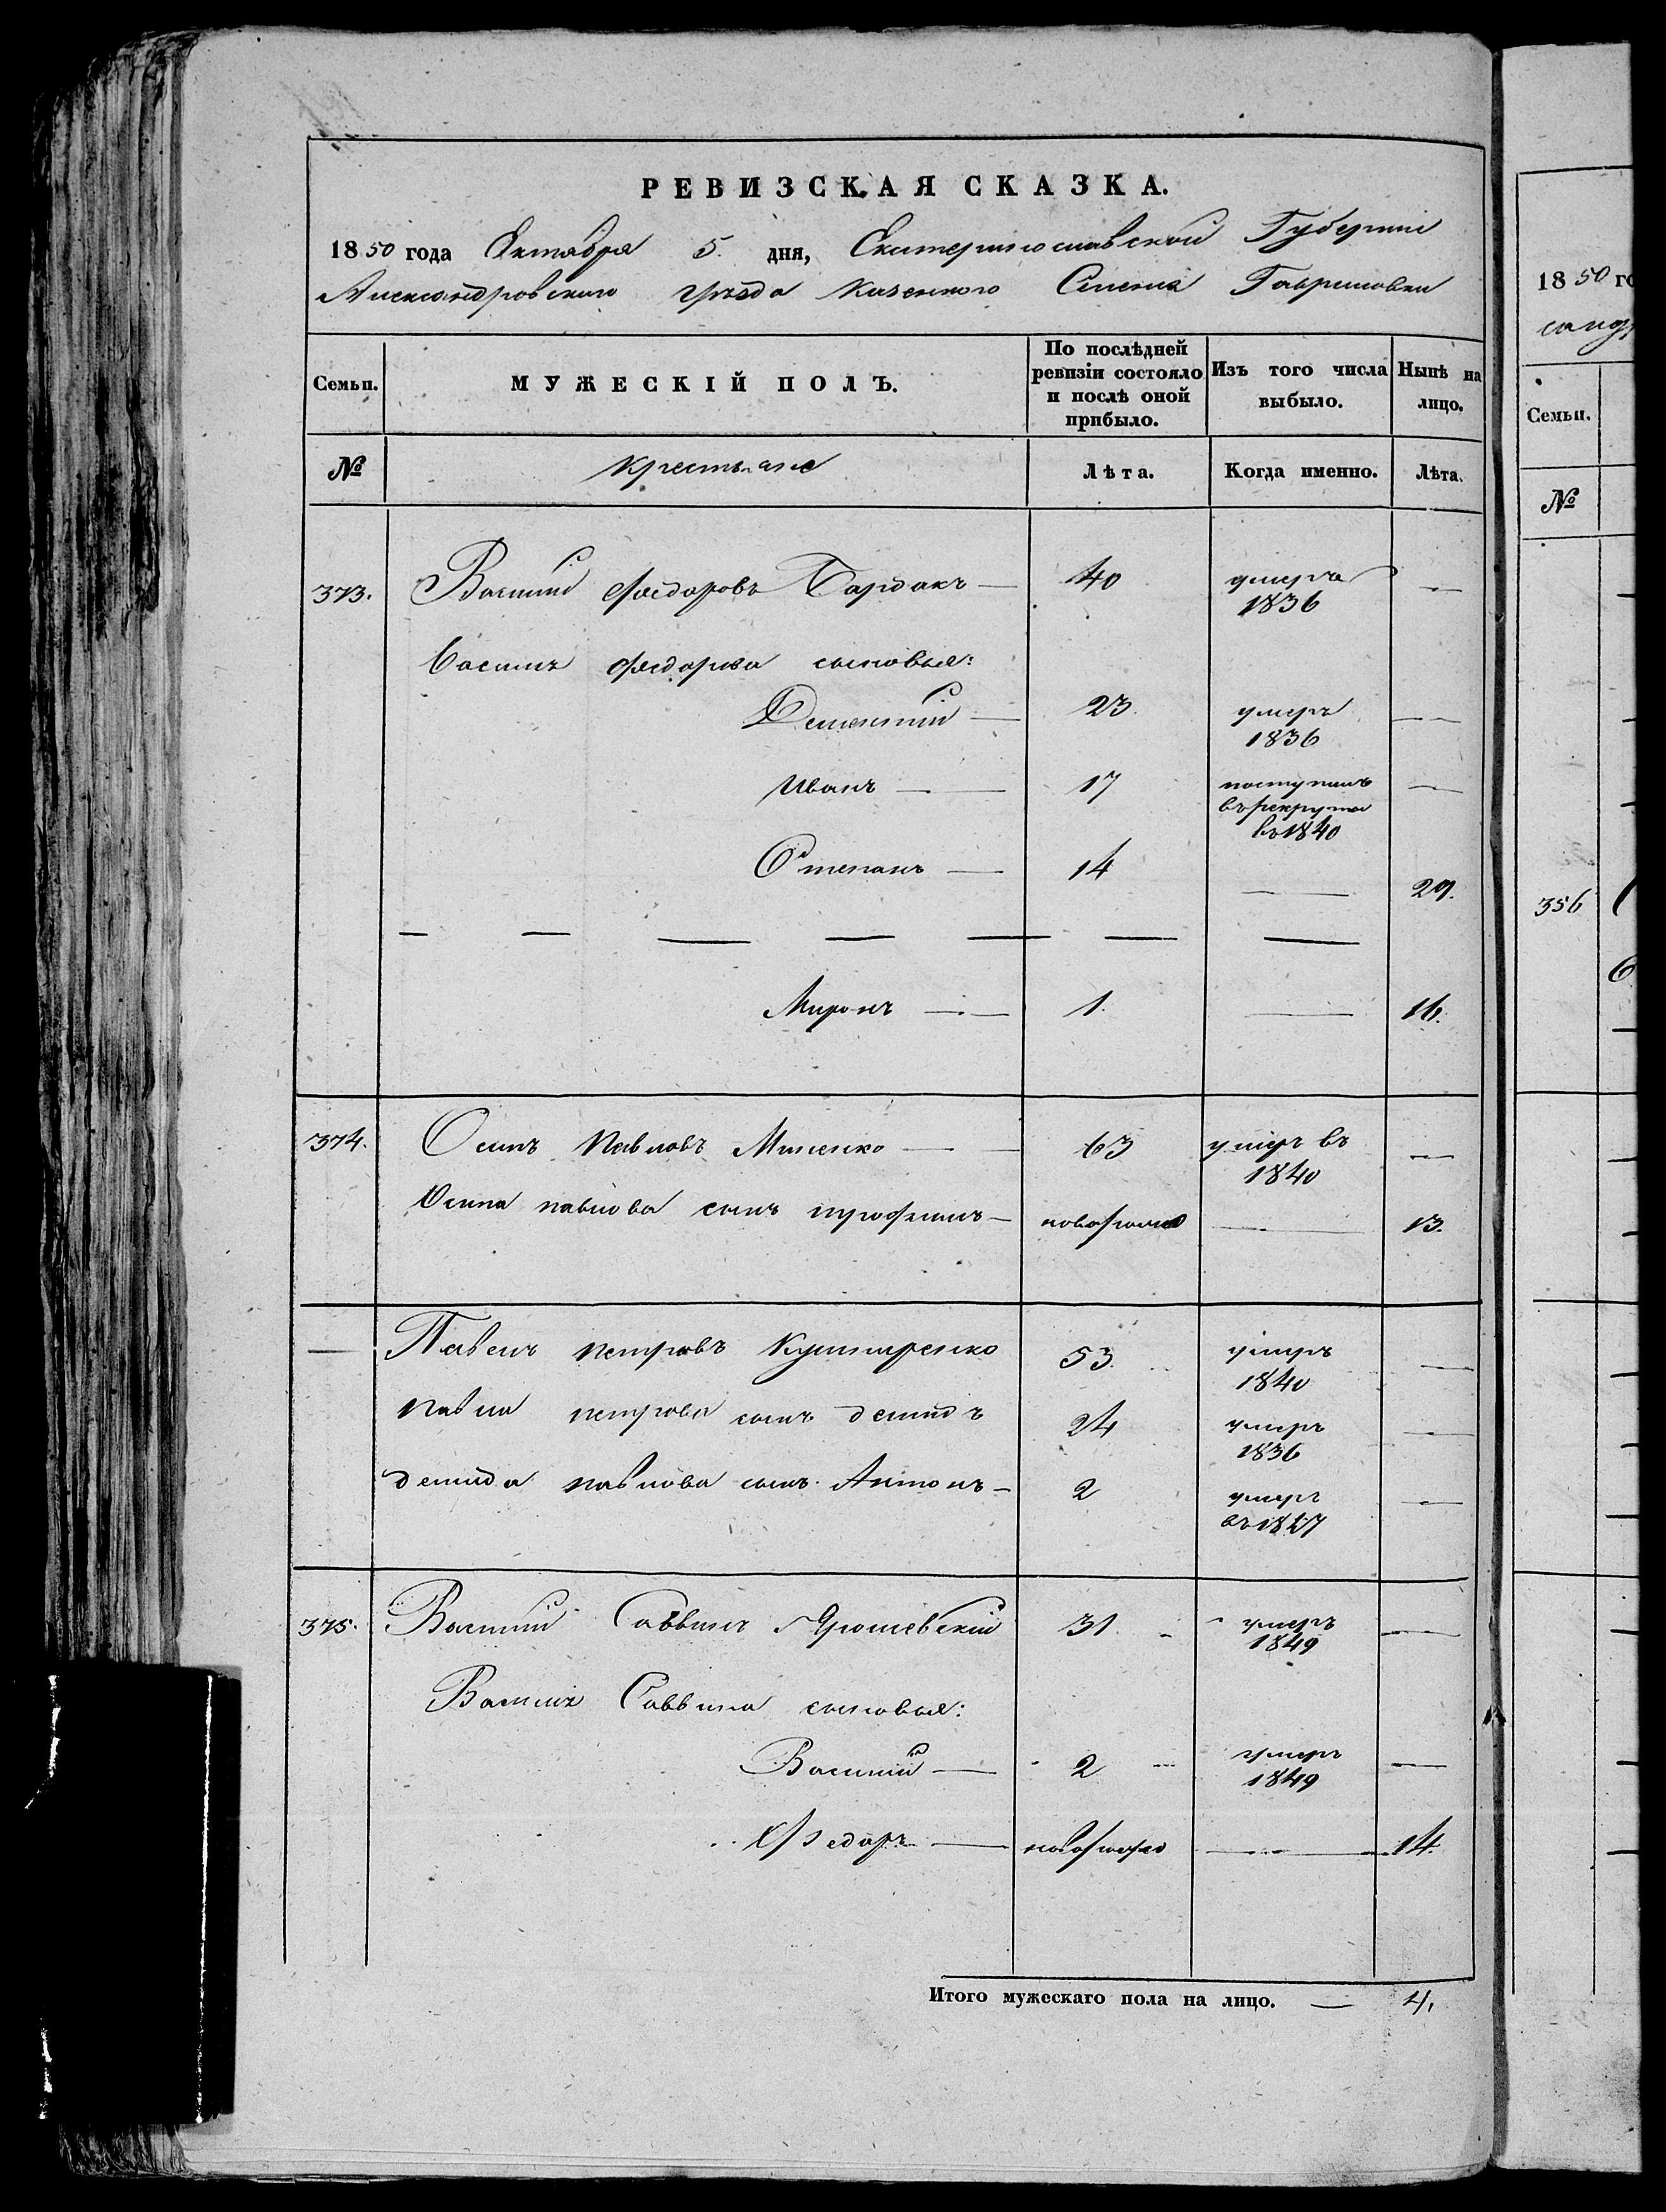 РЕВИЗСКАЯ СКАЗКА.
1850 года Октября 5. дня, Екатеринославской Губернии
Александровского уѣзда Казенного Селения Гавриловки
Семьи.
МУЖЕСКІЙ ПОЛЪ.
По послѣдней
ревизіи состояло
и послѣ оной
прибыло.
Изъ того числа
выбыло.
Нынѣ на
лицо.
№ крестьяне Лѣта. Когда именно. Лѣта.
373. Василий Федоровъ Бардакъ — 40 умеръ —
1836
Василия Федорова сыновья:
Дементий — 23. умеръ —
1836
Иванъ — — 17 поступилъ —
въ рекруты
въ 1840
Степанъ — 14 — 29.
Миронъ — — 1. — 16.
374. Осипъ Павловъ — — 63 умеръ въ —
1840
Осипа павлова сынъ трофимъ — новорожд — 13.
— Павелъ петровъ 53. умеръ —
1840
павла петрова сынъ демидъ 24 умеръ —
1836
демида павлова сынъ Антонъ — 2 умеръ —
375. Василий Саввинъ Ярошевский 31. умеръ —
1849
Василия Саввина сыновья:
Василий — 2 умеръ —
1849
Федоръ — новорожд — 14.
Итого мужескаго пола на лицо. — 4.
1850 го
Семьи.
№
356